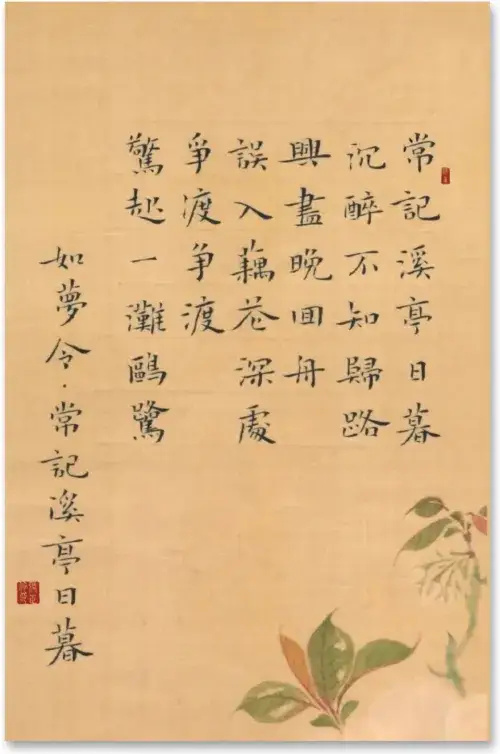 常記溪亭日暮
沉醉不知歸路
興盡晚回舟
誤入藕花深處
爭渡爭渡
驚起一灘鷗鷺
如夢令·常記溪亭日暮